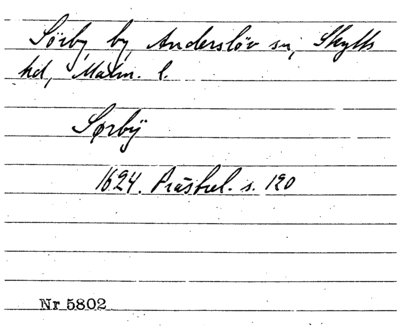 Sörby by, Anderslöv sn, Skytts
hd, Malm. l.
Sørbÿ
1624. Präsrel. s. 120
Nr 5802